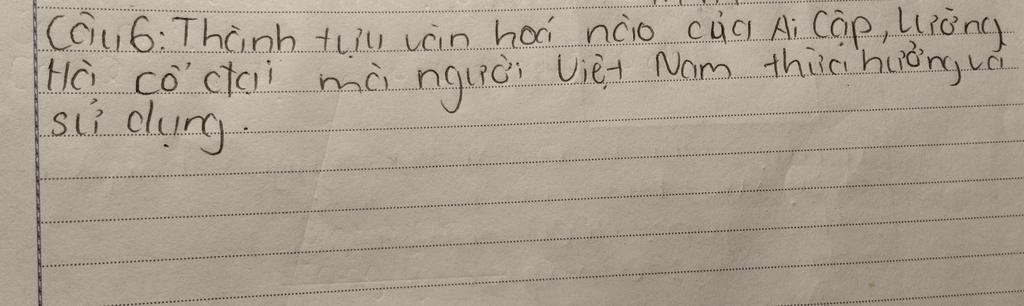 Câu 6: Thành tựu văn hoá nào của Ai Cập, Lưỡng
Hà cổ đại mà người Việt Nam thừa hưởng và
sử dụng.